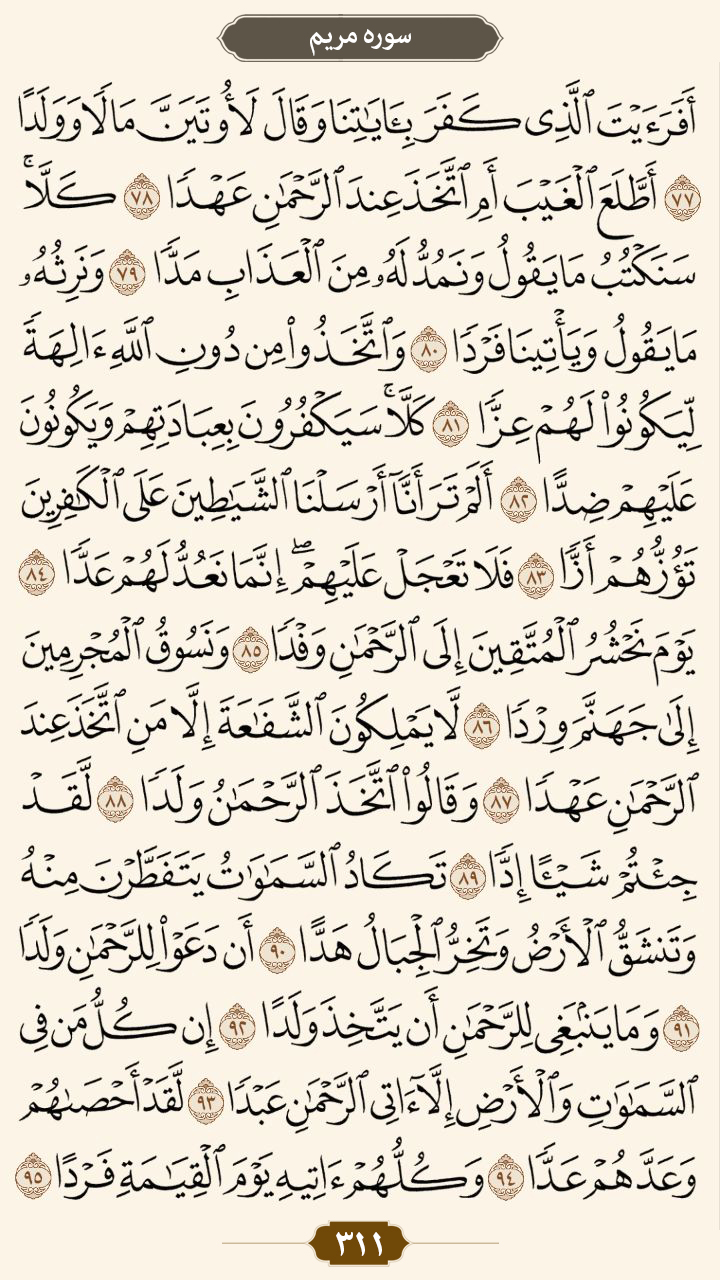 سوره مریم
أَفَرَءَيْتَ ٱلَّذِى كَفَرَ بِـَٔايَٰتِنَا وَقَالَ لَأُوتَيَنَّ مَالًا وَوَلَدًا
٧٧ أَطَّلَعَ ٱلْغَيْبَ أَمِ ٱتَّخَذَ عِندَ ٱلرَّحْمَٰنِ عَهْدًا ٧٨ كَلَّا ۚ
سَنَكْتُبُ مَا يَقُولُ وَنَمُدُّ لَهُۥ مِنَ ٱلْعَذَابِ مَدًّا ٧٩ وَنَرِثُهُۥ
مَا يَقُولُ وَيَأْتِينَا فَرْدًا ٨٠ وَٱتَّخَذُوا۟ مِن دُونِ ٱللَّهِ ءَالِهَةً
لِّيَكُونُوا۟ لَهُمْ عِزًّا ٨١ كَلَّا ۚ سَيَكْفُرُونَ بِعِبَادَتِهِمْ وَيَكُونُونَ
عَلَيْهِمْ ضِدًّا ٨٢ أَلَمْ تَرَ أَنَّآ أَرْسَلْنَا ٱلشَّيَٰطِينَ عَلَى ٱلْكَٰفِرِينَ
تَؤُزُّهُمْ أَزًّا ٨٣ فَلَا تَعْجَلْ عَلَيْهِمْ ۖ إِنَّمَا نَعُدُّ لَهُمْ عَدًّا ٨٤
يَوْمَ نَحْشُرُ ٱلْمُتَّقِينَ إِلَى ٱلرَّحْمَٰنِ وَفْدًا ٨٥ وَنَسُوقُ ٱلْمُجْرِمِينَ
إِلَىٰ جَهَنَّمَ وِرْدًا ٨٦ لَّا يَمْلِكُونَ ٱلشَّفَٰعَةَ إِلَّا مَنِ ٱتَّخَذَ عِندَ
ٱلرَّحْمَٰنِ عَهْدًا ٨٧ وَقَالُوا۟ ٱتَّخَذَ ٱلرَّحْمَٰنُ وَلَدًا ٨٨ لَّقَدْ
جِئْتُمْ شَيْـًٔا إِدًّا ٨٩ تَكَادُ ٱلسَّمَٰوَٰتُ يَتَفَطَّرْنَ مِنْهُ
وَتَنشَقُّ ٱلْأَرْضُ وَتَخِرُّ ٱلْجِبَالُ هَدًّا ٩٠ أَن دَعَوْا۟ لِلرَّحْمَٰنِ وَلَدًا
٩١ وَمَا يَنۢبَغِى لِلرَّحْمَٰنِ أَن يَتَّخِذَ وَلَدًا ٩٢ إِن كُلُّ مَن فِى
ٱلسَّمَٰوَٰتِ وَٱلْأَرْضِ إِلَّآ ءَاتِى ٱلرَّحْمَٰنِ عَبْدًا ٩٣ لَّقَدْ أَحْصَىٰهُمْ
وَعَدَّهُمْ عَدًّا ٩٤ وَكُلُّهُمْ ءَاتِيهِ يَوْمَ ٱلْقِيَٰمَةِ فَرْدًا ٩٥
٣١١